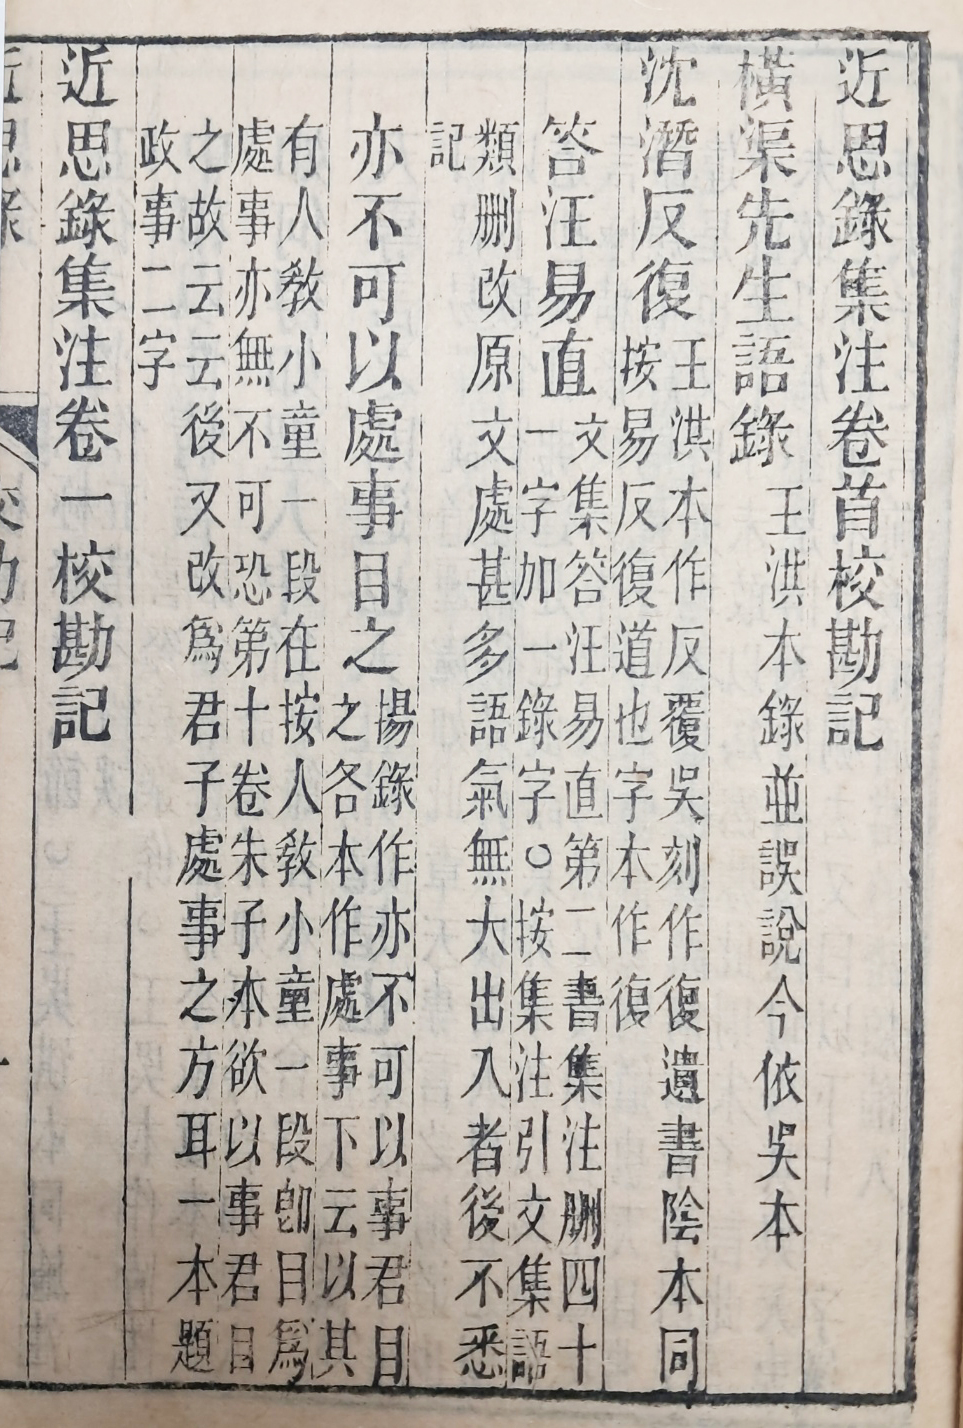 近思錄集注卷首校勘記
橫渠先生語錄王洪本錄並誤說今依吳本
沈潛反復王洪本作反覆吳刻作復遺書陰本同
按易反復道也字本作復
答汪易直文集答汪易直第二書集注刪四十
一字加一錄字○按集注引文集語
類刪改原文處甚多語氣無大出入者後不悉
記
亦不可以處事目之揚錄作亦不可以事君目
之各本作處事下云以其
有人敎小童一段在按人敎小童一段卽目爲
處事亦無不可恐第十卷朱子本欲以事君目
之故云云後又改爲君子處事之方耳一本題
政事二字
近思錄集注卷一校勘記